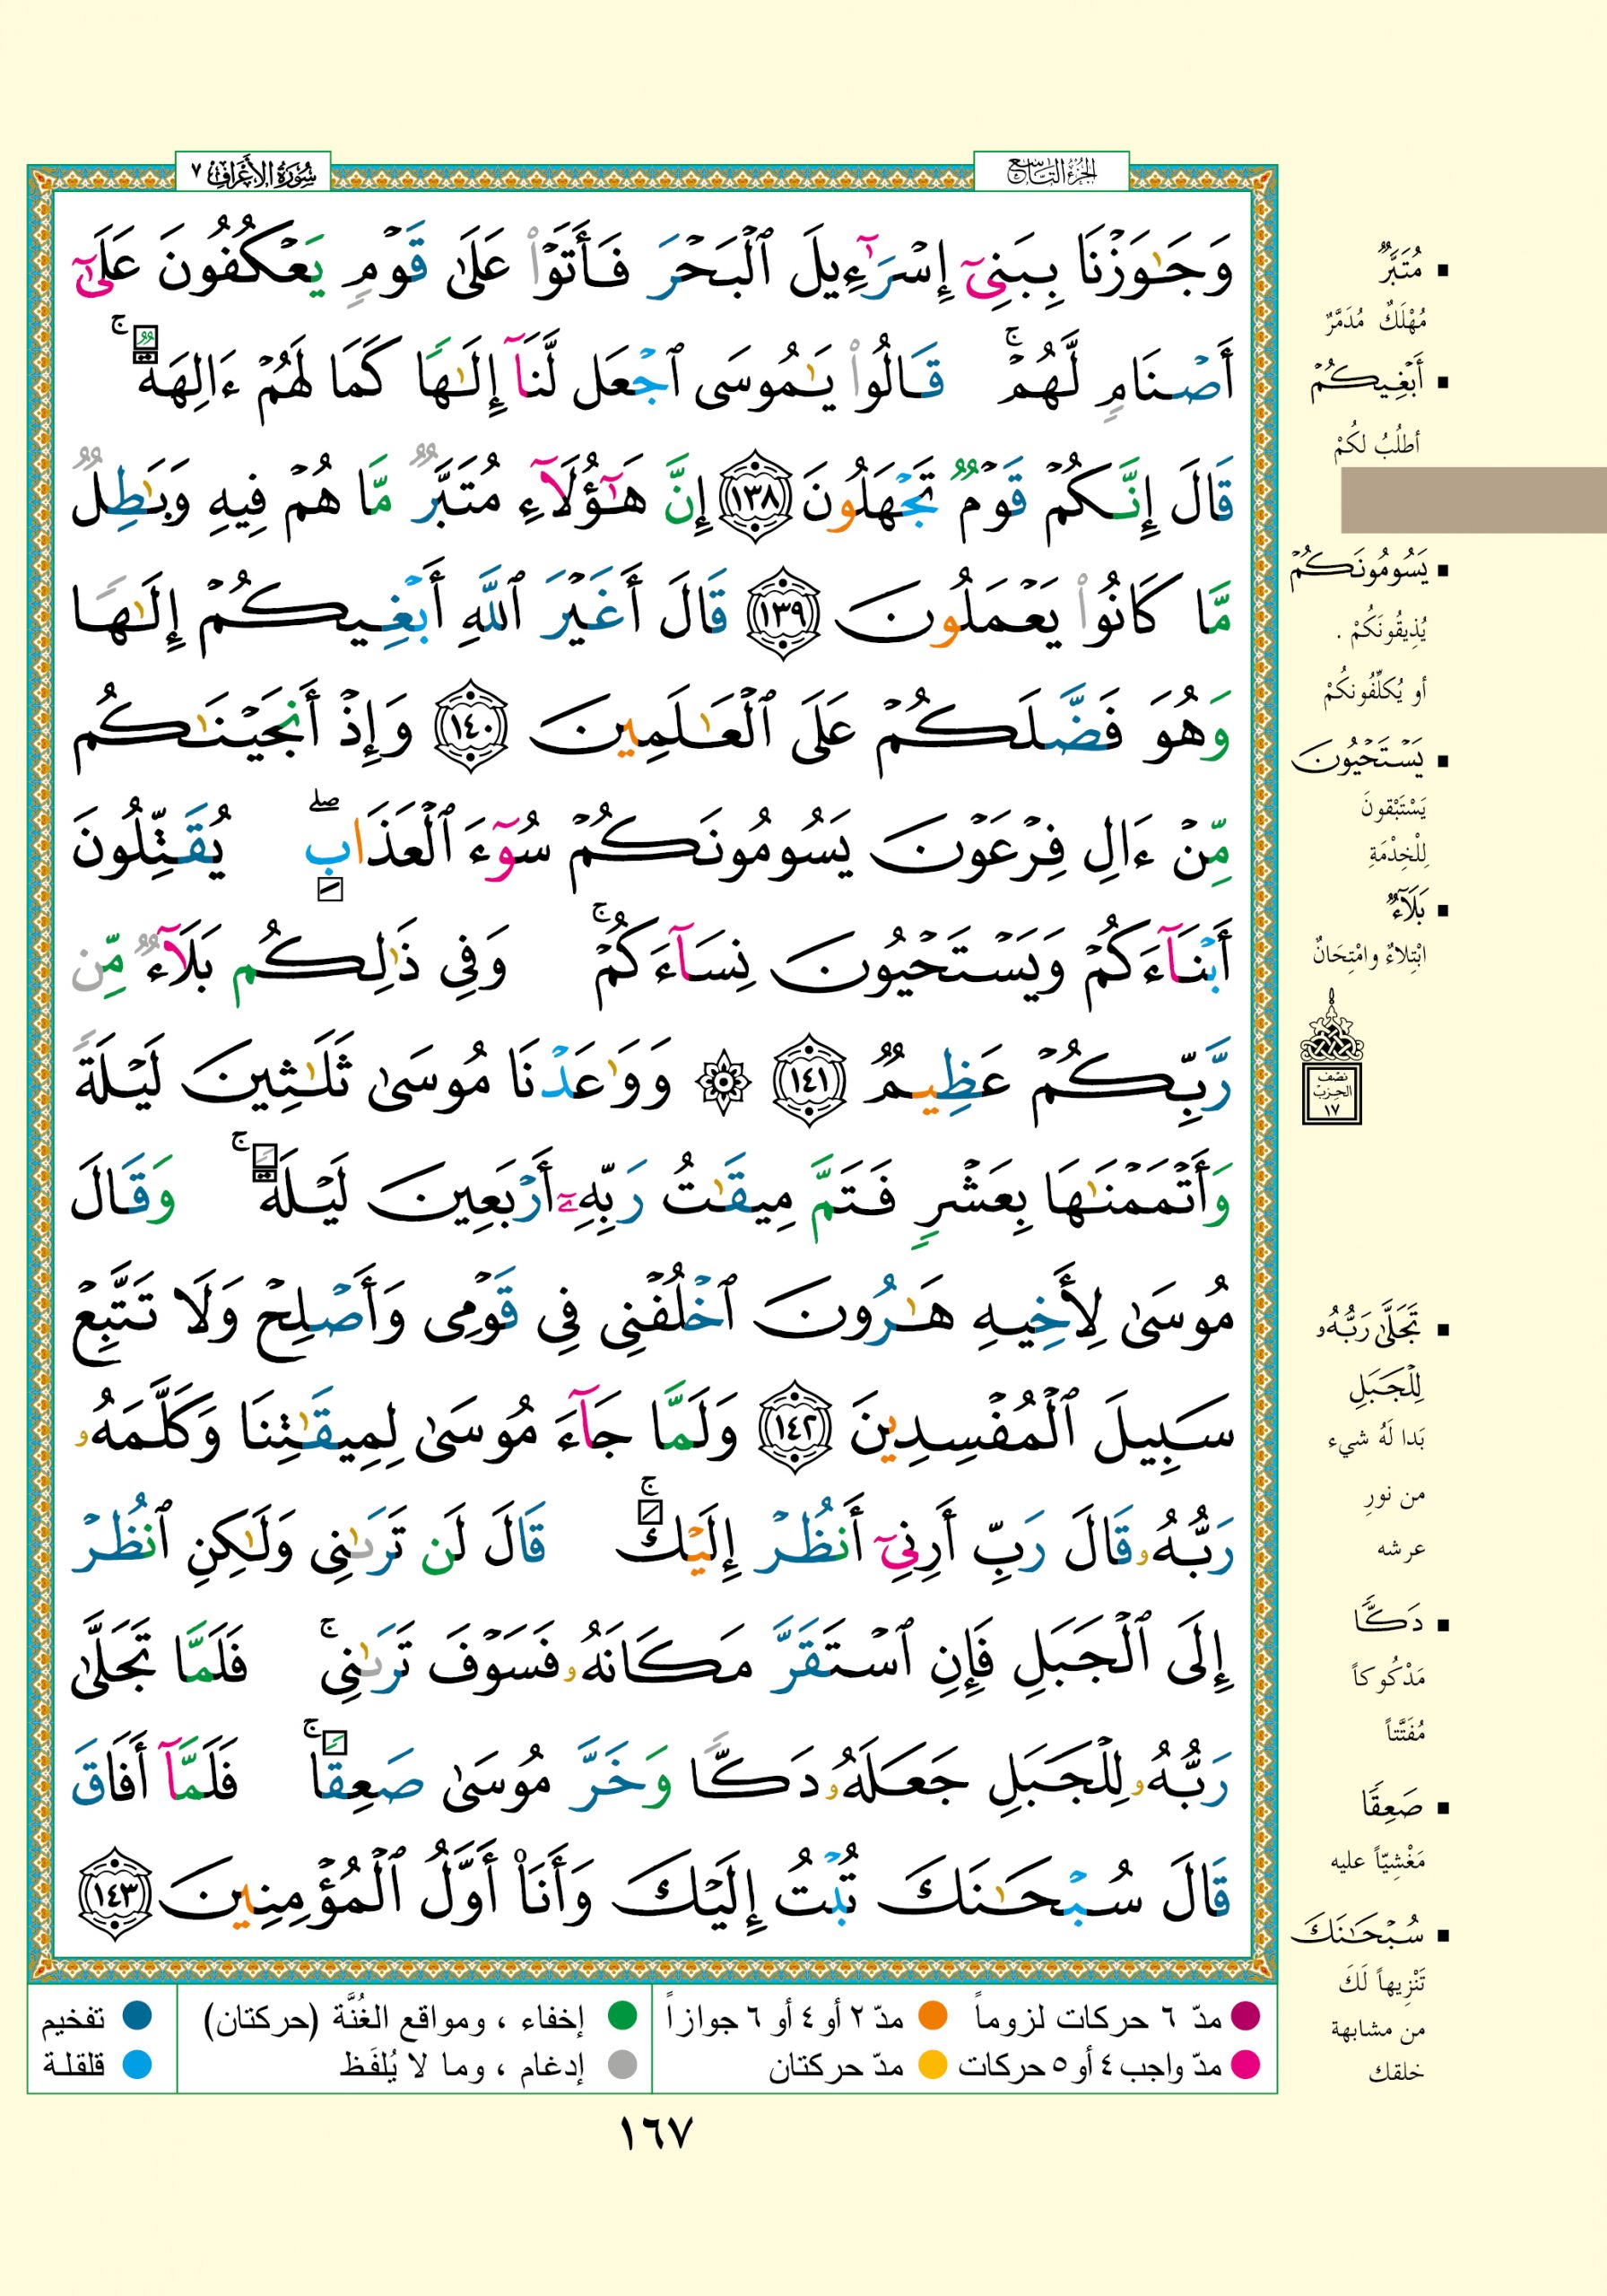 سُورَةُ الأَعْرَافِ ٧
الجُزْءُ التَّاسِعُ
وَجَٰوَزْنَا بِبَنِىٓ إِسْرَٰٓءِيلَ ٱلْبَحْرَ فَأَتَوْا۟ عَلَىٰ قَوْمٍ يَعْكُفُونَ عَلَىٰٓ
أَصْنَامٍ لَّهُمْ ۚ قَالُوا۟ يَٰمُوسَى ٱجْعَل لَّنَآ إِلَٰهًا كَمَا لَهُمْ ءَالِهَةٌ ۚ
قَالَ إِنَّكُمْ قَوْمٌ تَجْهَلُونَ ١٣٨ إِنَّ هَٰٓؤُلَآءِ مُتَبَّرٌ مَّا هُمْ فِيهِ وَبَٰطِلٌ
مَّا كَانُوا۟ يَعْمَلُونَ ١٣٩ قَالَ أَغَيْرَ ٱللَّهِ أَبْغِيكُمْ إِلَٰهًا
وَهُوَ فَضَّلَكُمْ عَلَى ٱلْعَٰلَمِينَ ١٤٠ وَإِذْ أَنجَيْنَٰكُم
مِّنْ ءَالِ فِرْعَوْنَ يَسُومُونَكُمْ سُوٓءَ ٱلْعَذَابِ ۖ يُقَتِّلُونَ
أَبْنَآءَكُمْ وَيَسْتَحْيُونَ نِسَآءَكُمْ ۚ وَفِى ذَٰلِكُم بَلَآءٌ مِّن
رَّبِّكُمْ عَظِيمٌ ١٤١ ۞ وَوَٰعَدْنَا مُوسَىٰ ثَلَٰثِينَ لَيْلَةً
وَأَتْمَمْنَٰهَا بِعَشْرٍ فَتَمَّ مِيقَٰتُ رَبِّهِۦٓ أَرْبَعِينَ لَيْلَةً ۚ وَقَالَ
مُوسَىٰ لِأَخِيهِ هَٰرُونَ ٱخْلُفْنِى فِى قَوْمِى وَأَصْلِحْ وَلَا تَتَّبِعْ
سَبِيلَ ٱلْمُفْسِدِينَ ١٤٢ وَلَمَّا جَآءَ مُوسَىٰ لِمِيقَٰتِنَا وَكَلَّمَهُۥ
رَبُّهُۥ قَالَ رَبِّ أَرِنِىٓ أَنظُرْ إِلَيْكَ ۚ قَالَ لَن تَرَىٰنِى وَلَٰكِنِ ٱنظُرْ
إِلَى ٱلْجَبَلِ فَإِنِ ٱسْتَقَرَّ مَكَانَهُۥ فَسَوْفَ تَرَىٰنِى ۚ فَلَمَّا تَجَلَّىٰ
رَبُّهُۥ لِلْجَبَلِ جَعَلَهُۥ دَكًّا وَخَرَّ مُوسَىٰ صَعِقًا ۚ فَلَمَّآ أَفَاقَ
قَالَ سُبْحَٰنَكَ تُبْتُ إِلَيْكَ وَأَنَا۠ أَوَّلُ ٱلْمُؤْمِنِينَ ١٤٣
مُتَبَّرٌ
مُهْلَكٌ مُدَمَّرٌ
أَبْغِيكُمْ
أطلُبُ لكُمْ
يَسُومُونَكُمْ
يُذِيقُونَكُمْ .
أو يُكلِّفُونكُمْ
يَسْتَحْيُونَ
يَسْتَبْقونَ
لِلْخِدْمَةِ
بَلَآءٌ
ابْتِلاءٌ وامْتِحَانٌ
نصف
الحزب
١٧
تَجَلَّىٰ رَبُّهُۥ
لِلْجَبَلِ
بَدا لَهُ شيء
من نورِ
عرشه
دَكًّا
مَدْكُوكاً
مُفَتَّتاً
صَعِقًا
مَغْشِيّاً عليه
سُبْحَٰنَكَ
تَنْزِيهاً لَكَ
من مشابهة
خلقك
مدّ ٦ حركات لزوماً مدّ ٢ أو ٤ أو ٦ جوازاً إخفاء ، ومواقع الغُنَّة (حركتان) تفخيم
مدّ واجب ٤ أو ٥ حركات مدّ حركتان إدغام ، وما لا يُلفَظ قلقلة
١٦٧